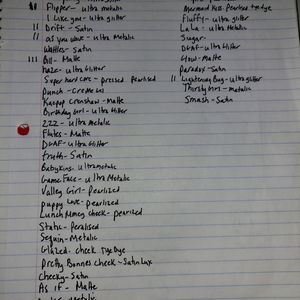 Flipper- ultra metallic
I like you- ultra glitter
Drift- Satin
as you wave- ultra Metalic
Waffles- Satin
Bill- Matte
haze- ultra Glitter
Super hard core- pressed pearlised
Punch- Creme Gel
Karpop Crenshaw- Matte
Birthday Girl- Ultra Glitter
ZZZ- ultra Metalic
Flutes- Matte
DGAF- ultra Glitter
truth- Satin
Babykins. Ultrametalic
Game Face- Ultra Metalic
Valley Girl- Pearlized
puppy Love- pearlized
Lunch Money check- pearlized
Static- Peralised
Sequin- Metalic
Glazed- check Tye Dye
Pretty Bonnes check- Satin Lux
Cheeky- Satin
As If- Matte
Mermaid Kiss. Pearlised + edge
Fluffy- ultra glitter
LaLa- Ultra Metalic
Sugar-
DGAF- Ultra Glitter
Glow- Matte
Paradox- Satin
Lightening Bug- ultra glitter
Thirsty Girl- metalic
Smash- Satin